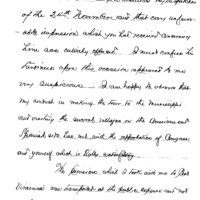 of the 24th November and that any unfavor-
able impression which you had received concerning
him was entirely effaced. I must confess his
business upon this occasion appeared to me
very suspicious. I am happy to observe that
my conduct in making the tour to the Mississippi
and visiting the several villages on the American and
Spanish side has met with the approbation of Congress
and yourself which is highly satisfactory
The Gentlemen which I took with me to Post
Vincennes was transported at the public expence and not